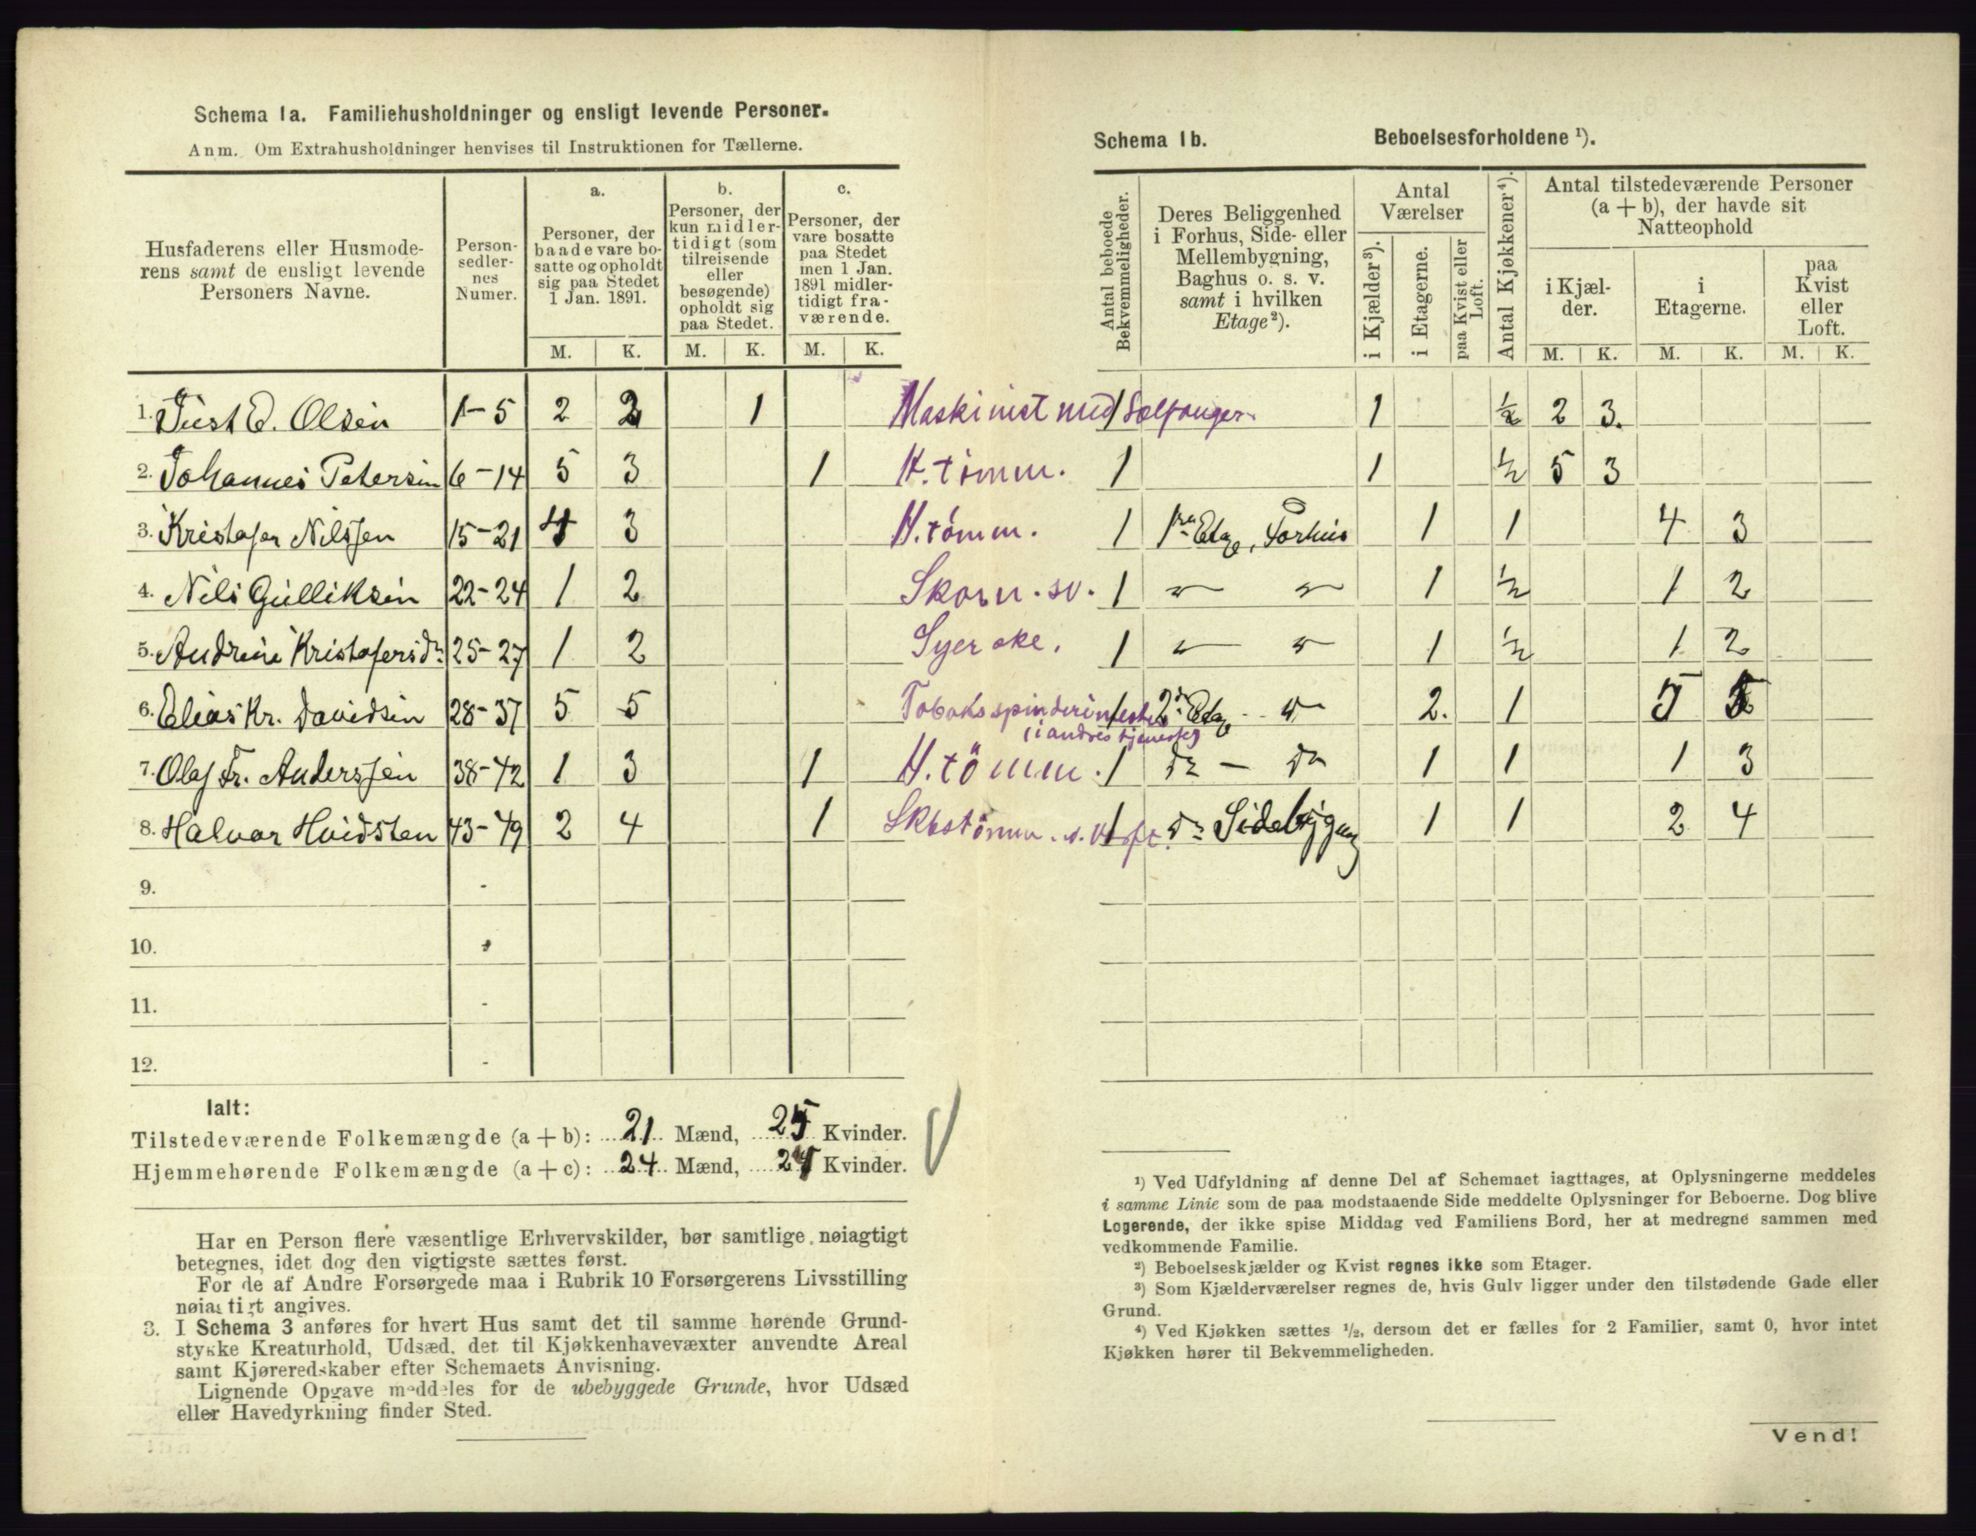 Schema 1a. Familiehusholdninger og ensligt levende Personer.
Anm. Om Extrahusholdninger henvises til Instruktionen for Tællerne.
Husfaderens eller Husmode-
rens samt de ensligt levende
Personers Navne.
Person-
sedler-
nes
Numer.
a.
Personer, der
baade vare bo-
satte og opholdt
sig paa Stedet
1 Jan. 1891.
b.
Personer, der
kun midler-
tidigt (som
tilreisende
eller
besøgende)
opholdt sig
paa Stedet.
c.
Personer, der
vare bosatte
paa Stedet
men 1 Jan.
1891 midler-
tidigt fra-
værende.
M. K. M. K. M. K.
1. Just E. Olsen 1-5 2 2 1
2. Johannes Petersen 6-14 5 3 1
3. Kristofer Nilssen 15-21 4 3
4. Nils Gulliksen 22-24 1 2
5. Andrine Kristofersdr 25-27 1 2
6. Elias Kr. Davidsen 28-37 5 5
7. Olaf Fr. Anderssen 38-42 1 3 1
8. Halvor Hvidsten 43-49 2 4 1
9. -
10.
11. -
12. -
Ialt:
Tilstedeværende Folkemængde (a + b): 21 Mænd, 25 Kvinder.
Hjemmehørende Folkemængde (a + c): 24 Mænd, 24 Kvinder.
Har en Person flere væsentlige Erhvervskilder, bør samtlige nøiagtigt
betegnes, idet dog den vigtigste sættes først.
For de af Andre Forsørgede maa i Rubrik 10 Forsørgerens Livsstilling
nøiagtigt angives.
3. I Schema 3 anføres for hvert Hus samt det til samme hørende Grund-
stykke Kreaturhold, Udsæd, det til Kjøkkenhavevæxter anvendte Areal
samt Kjøreredskaber efter Schemaets Anvisning.
Lignende Opgave meddeles for de ubebyggede Grunde, hvor Udsæd
eller Havedyrkning finder Sted.
Schema 1b. Beboelsesforholdene ¹).
Antal beboede
Bekvemmeligheder.
Deres Beliggenhed
i Forhus, Side- eller
Mellembygning,
Baghus o. s. v.
samt i hvilken
Etage²).
Antal
Værelser
i Kjælder³).
i Etagerne.
paa Kvist eller
Loft.
Antal Kjøkkener⁴).
Antal tilstedeværende Personer
(a + b), der havde sit
Natteophold
i Kjæl-
der.
i
Etagerne.
paa
Kvist
eller
Loft.
M. K. M. K. M. K.
Maskinist med Sælfanger. 1 1 ½ 2 3.
H. tømm. 1 1 ½ 5 3
H. tømm. 1 1ste Etage, Forhus 1 1 4 3
Skom. sv. 1 " " 1 ½ 1 2
Syerske. 1 " " 1 ½ 1 2
Tobaksspinderimester 1 2den Etage do 2. 1 5 5
(i andres tjeneste)
H. tømm. 1 do - do 1 1 1 3
Skbstømm. 1 do Sidebygn 1 1 2 4
¹) Ved Udfyldning af denne Del af Schemaet iagttages, at Oplysningerne meddeles
i samme Linie som de paa modstaaende Side meddelte Oplysninger for Beboerne. Dog blive
Logerende, der ikke spise Middag ved Familiens Bord, her at medregne sammen med
vedkommende Familie.
²) Beboelseskjælder og Kvist regnes ikke som Etager.
³) Som Kjælderværelser regnes de, hvis Gulv ligger under den tilstødende Gade eller
Grund.
⁴) Ved Kjøkken sættes ¹/₂, dersom det er fælles for 2 Familier, samt 0, hvor intet
Kjøkken hører til Bekvemmeligheden.
Vend!